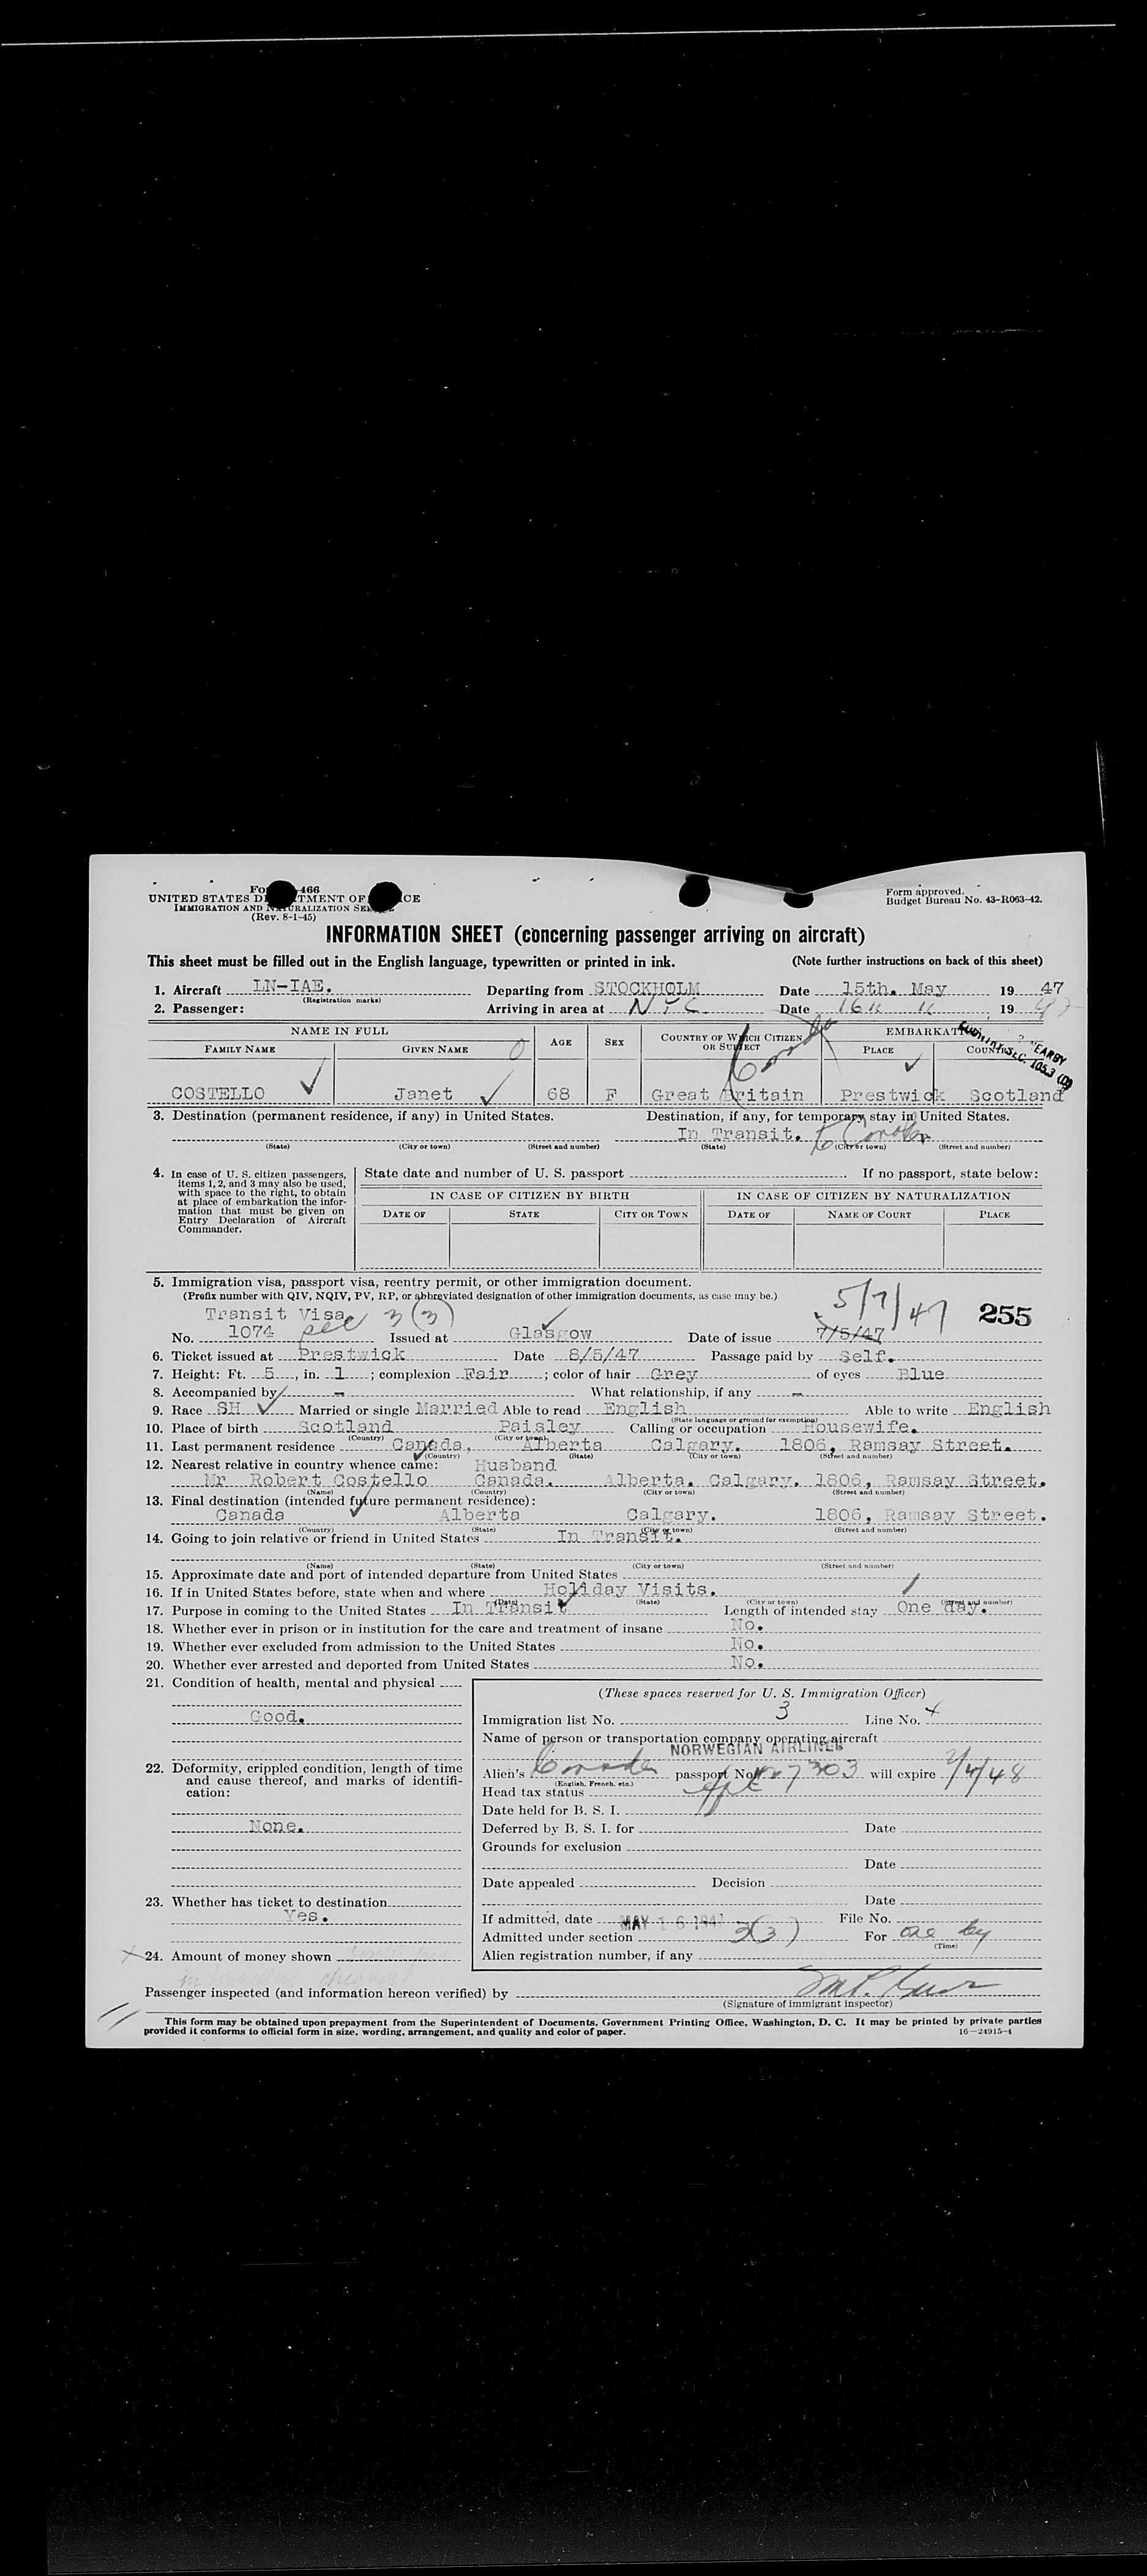 Form approved.
Budget Bureau No. 43-R063-42.
UNITED STATES
IMMIGRATION AND NATURALIZATION
(Rev. 8-1-45)
INFORMATION SHEET (concerning passenger arriving on aircraft)
This sheet must be filled out in the English language, typewritten or printed in ink. (Note further instructions on back of this sheet)
1. Aircraft LN-IAE. Departing from STOCKHOLM Date 15th. May 19 47
(Registration marks)
2. Passenger: Arriving in area at N.Y.C. Date 16 " " , 19 47
NAME IN FULL AGE SEX COUNTRY OF WHICH CITIZEN OR SUBJECT EMBARKATION
FAMILY NAME GIVEN NAME PLACE COUNTRY
Canada
COSTELLO Janet 68 F Great Britain Prestwick Scotland
3. Destination (permanent residence, if any) in United States. Destination, if any, for temporary stay in United States.
In Transit. to Canada
(State) (City or town) (Street and number) (State) (City or town) (Street and number)
4. In case of U. S. citizen passengers, items 1, 2, and 3 may also be used, with space to the right, to obtain at place of embarkation the information that must be given on Entry Declaration of Aircraft Commander.
State date and number of U. S. passport If no passport, state below:
IN CASE OF CITIZEN BY BIRTH IN CASE OF CITIZEN BY NATURALIZATION
DATE OF STATE CITY OR TOWN DATE OF NAME OF COURT PLACE
5. Immigration visa, passport visa, reentry permit, or other immigration document.
(Prefix number with QIV, NQIV, PV, RP, or abbreviated designation of other immigration documents, as case may be.)
5/7/47 255
Transit Visa sec 3(3)
No. 1074 Issued at Glasgow Date of issue 7/5/47
6. Ticket issued at Prestwick Date 8/5/47 Passage paid by Self.
7. Height: Ft. 5, in. 1; complexion Fair; color of hair Grey of eyes Blue
8. Accompanied by - What relationship, if any -
9. Race SH Married or single Married Able to read English Able to write English
(State language or ground for exemption)
10. Place of birth Scotland Paisley Calling or occupation Housewife.
(Country) (City or town)
11. Last permanent residence Canada, Alberta Calgary. 1806, Ramsay Street.
(Country) (State) (City or town) (Street and number)
12. Nearest relative in country whence came: Husband
Mr Robert Costello Canada. Alberta. Calgary. 1806, Ramsay Street.
(Name) (Country) (City or town) (Street and number)
13. Final destination (intended future permanent residence):
Canada Alberta Calgary. 1806, Ramsay Street.
(Country) (State) (City or town) (Street and number)
14. Going to join relative or friend in United States In Transit.
(Name) (State) (City or town) (Street and number)
15. Approximate date and port of intended departure from United States
16. If in United States before, state when and where Holiday Visits.
(Date) (State) (City or town) (Street and number)
17. Purpose in coming to the United States In Transit Length of intended stay One day.
18. Whether ever in prison or in institution for the care and treatment of insane No.
19. Whether ever excluded from admission to the United States No.
20. Whether ever arrested and deported from United States No.
21. Condition of health, mental and physical
Good.
22. Deformity, crippled condition, length of time and cause thereof, and marks of identification:
None.
23. Whether has ticket to destination
Yes.
24. Amount of money shown
(These spaces reserved for U. S. Immigration Officer)
Immigration list No. 3 Line No. 4
Name of person or transportation company operating aircraft
NORWEGIAN AIRLINES
Alien's Canada passport No. will expire 2/4/48
(English, French, etc.)
Head tax status
Date held for B. S. I.
Deferred by B. S. I. for Date
Grounds for exclusion
Date
Date appealed Decision
Date
If admitted, date MAY 16 1947 File No.
Admitted under section 3(3) For one day
(Time)
Alien registration number, if any
Passenger inspected (and information hereon verified) by
(Signature of immigrant inspector)
This form may be obtained upon prepayment from the Superintendent of Documents, Government Printing Office, Washington, D. C. It may be printed by private parties
provided it conforms to official form in size, wording, arrangement, and quality and color of paper. 16—24915-4